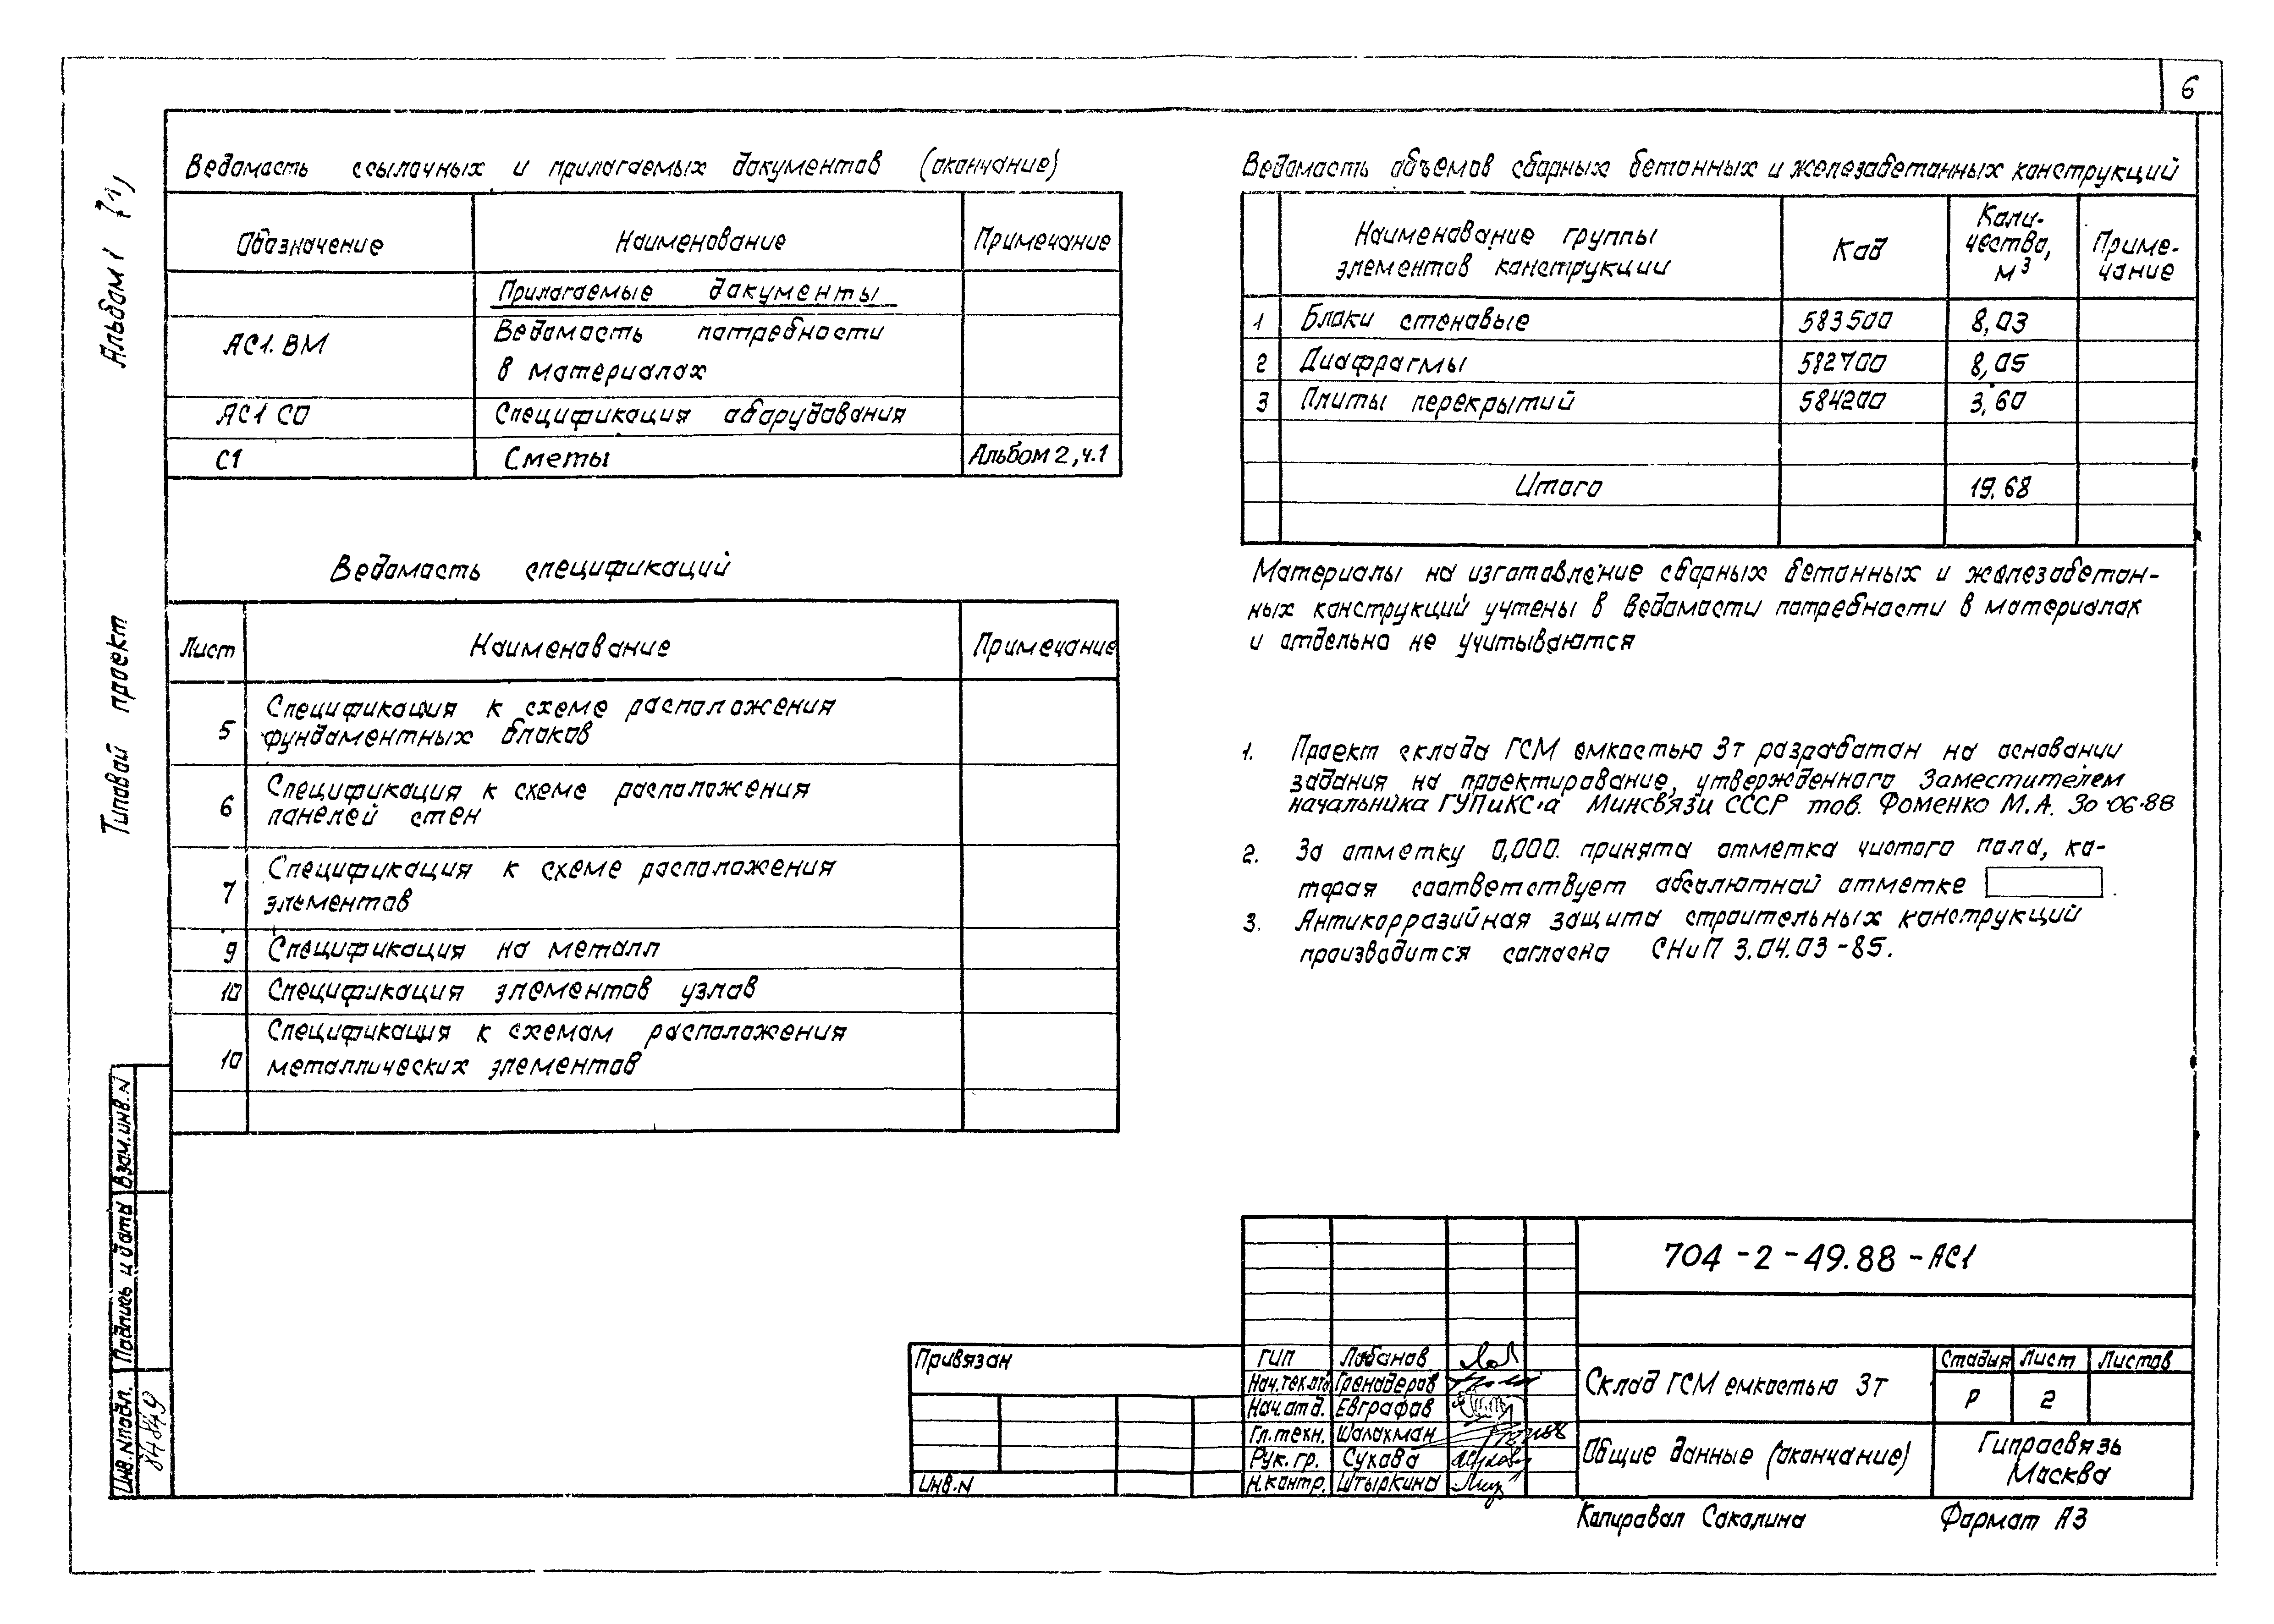 6
Альбом 1
Типовой проект
Ведомость ссылочных и прилагаемых документов (окончание)
Обозначение
Наименование
Примечание
Прилагаемые документы
АС1. ВМ
Ведомость потребности
в материалах
АС1 СО
Спецификация оборудования
С1
Сметы
Альбом 2, ч.1
Ведомость спецификаций
Лист
Наименование
Примечание
5
Спецификация к схеме расположения
фундаментных блоков
6
Спецификация к схеме расположения
панелей стен
7
Спецификация к схеме расположения
элементов
9
Спецификация на металл
10
Спецификация элементов узлов
10
Спецификация к схемам расположения
металлических элементов
Ведомость объемов сборных бетонных и железобетонных конструкций
Наименование группы
элементов конструкции
Код
Коли-
чество,
м³
Приме-
чание
1
Блоки стеновые
583500
8,03
2
Диафрагмы
582700
8,05
3
Плиты перекрытий
584200
3,60
Итого
19.68
Материалы на изготовление сборных бетонных и железобетон-
ных конструкций учтены в ведомости потребности в материалах
и отдельно не учитываются
1. Проект склада ГСМ емкостью 3т разработан на основании
задания на проектирование, утвержденного Заместителем
начальника ГУПиКС·а Минсвязи СССР тов. Фоменко М.А. 30·06·88
2. За отметку 0,000. принята отметка чистого пола, ко-
торая соответствует абсолютной отметке .
3. Антикоррозийная защита строительных конструкций
производится согласно СНиП 3.04.03-85.
Взам.инв.N
Подпись и дата
Инв.Nподл.
84849
Привязан
Инв.N
ГИП Лобанов
Нач.тех.отд. Гренадеров
Нач.отд. Евграфов
Гл.техн. Шолохман
Рук.гр. Сухова
Н.контр. Штыркина
704-2-49.88-АС1
Склад ГСМ емкостью 3т
Стадия Лист Листов
Р 2
Общие данные (окончание)
Гипросвязь
Москва
Копировал Соколина
Формат А3